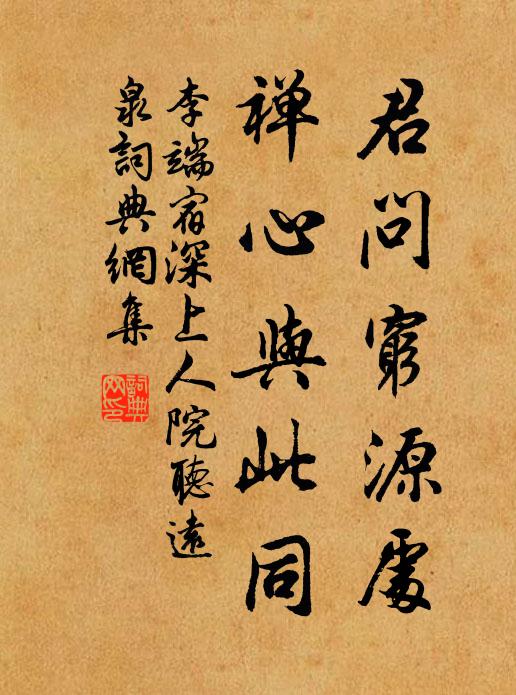 君問窮源處
禪心與此同
李端宿深上人院聽遠
泉詞典網集
詞典
网印